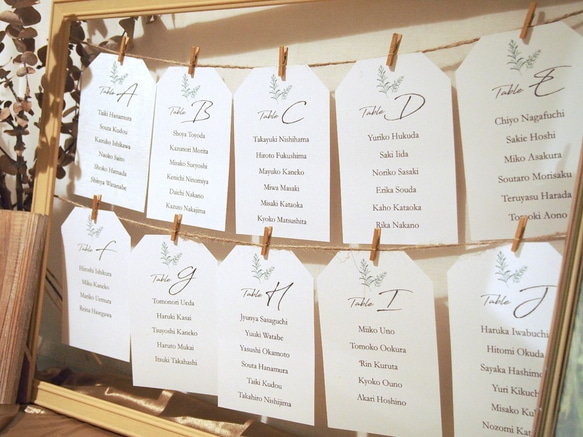 Table A
Taiki Hanamura
Souta Kudou
Kazuko Ishikawa
Naoko Saito
Shoko Hamada
Shinya Watanabe
Table B
Shoya Toyoda
Kazunori Morita
Misako Sueyoshi
Kenichi Ninomiya
Daichi Nakano
Kazuto Nakajima
Table C
Takayuki Nishihama
Hiroto Fukushima
Mayuko Kaneko
Miwa Masaki
Misaki Kataoka
Kyoko Matsushita
Table D
Yuriko Hukuda
Saki Iida
Noriko Sasaki
Erika Souda
Kaho Kataoka
Rika Nakano
Table E
Chiyo Nagafuchi
Sakie Hoshi
Miko Asakura
Soutaro Morisaku
Teruyasu Harada
Tomoki Aono
Table F
Hitoshi Ishikura
Miko Kaneko
Mariko Uemura
Hasegawa
Table G
Tomonori Ueda
Haruki Kasai
Tsuyoshi Kaneko
Haruto Mukai
Itsuki Takahashi
Table H
Jyunya Sataguchi
Yuuki Watabe
Yasushi Okamoto
Souta Hanamura
Taiki Kudou
Takahiro Nishijima
Table I
Miiko Uno
Tomoko Ookura
Rin Kuruta
Kyoko Ouno
Akari Hoshino
Table J
Haruka Iwabuchi
Hitomi Okuda
Sayaka Hashimo
Yuri Kikuch
Misako Ku
Nozomi Kat